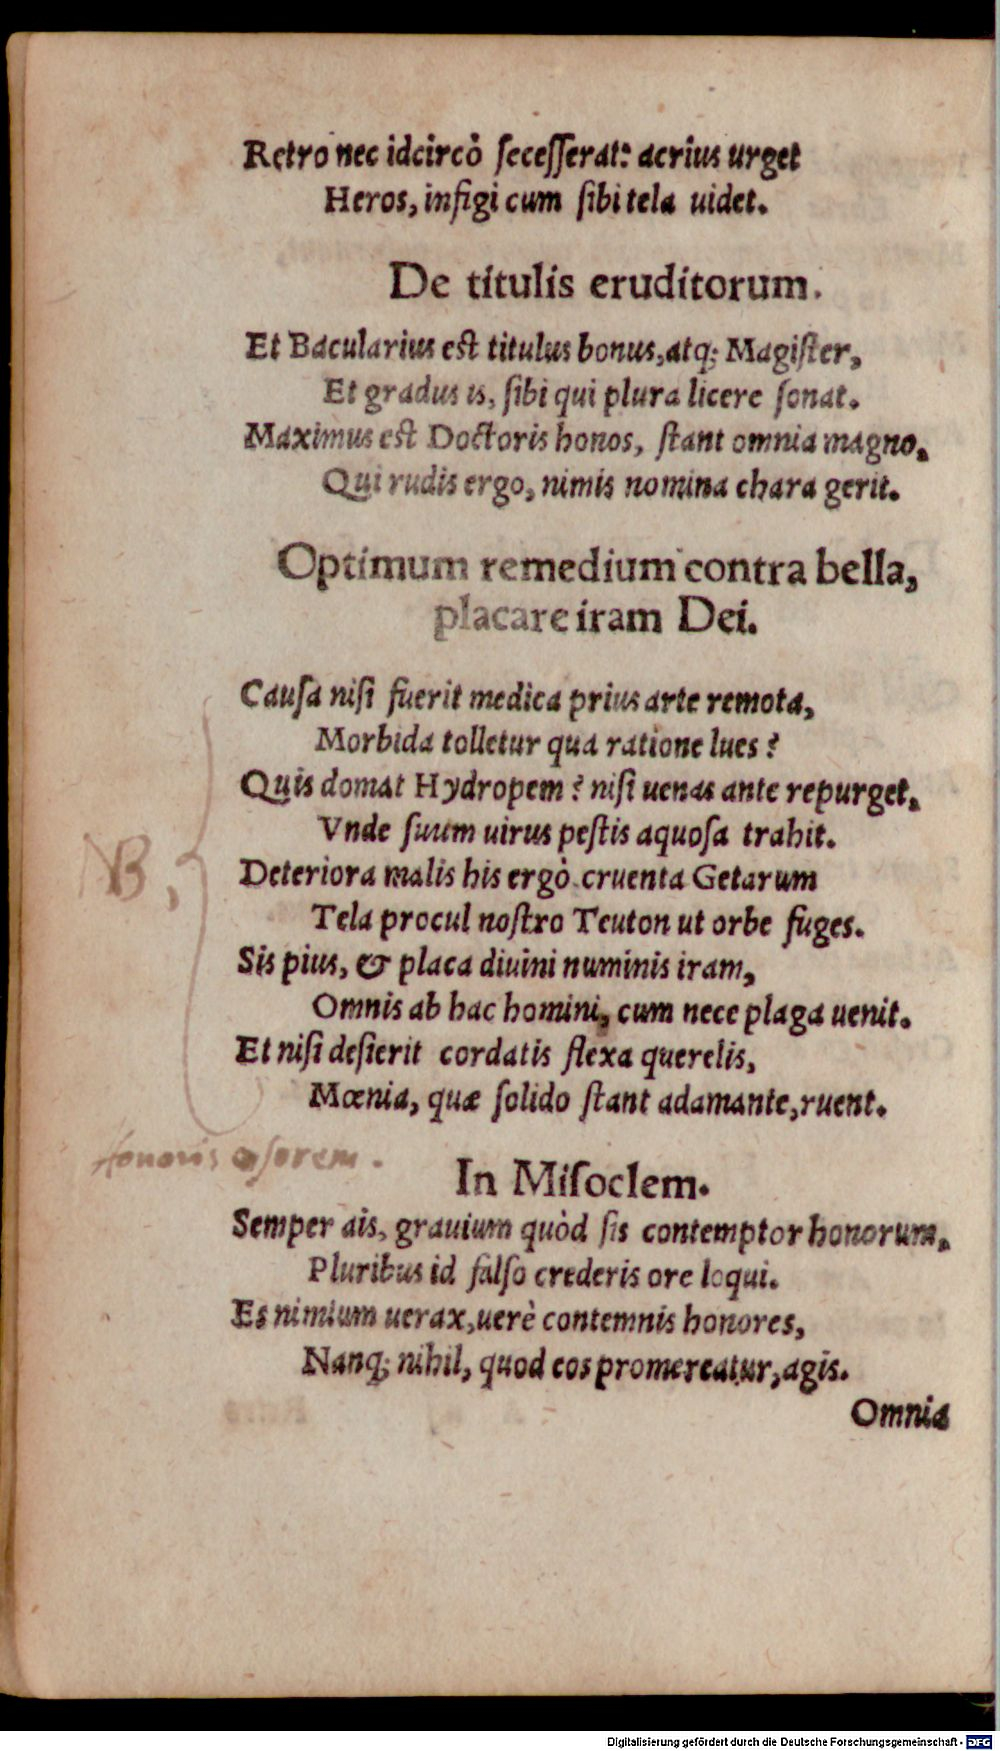 Retro nec idcircò ſeceſſerat: acrius urget
Heros, infigi cum ſibi tela uidet.
De titulis eruditorum.
Et Bacularius est titulus bonus, atq; Magiſter,
Et gradus is, ſibi qui plura licere ſonat.
Maximus est Doctoris honos, ſtant omnia magno,
Qui rudis ergo, nimis nomina chara gerit.
Optimum remedium contra bella,
placare iram Dei.
Cauſa niſi fuerit medica prius arte remota,
Morbida tolletur qua ratione lues?
Quis domat Hydropem? niſi uenas ante repurget,
Vnde ſuum uirus peſtis aquoſa trahit.
NB,
Deteriora malis his ergò cruenta Getarum
Tela procul noſtro Teuton ut orbe fuges.
Sis pius, & placa diuini numinis iram,
Omnis ab hac homini, cum nece plaga uenit.
Et niſi deſierit cordatis flexa querelis,
Mœnia, quæ ſolido ſtant adamante, ruent.
Honoris osorem.
In Miſoclem.
Semper ais, grauium quòd ſis contemptor honorum,
Pluribus id falſo crederis ore loqui.
Es nimium uerax, uerè contemnis honores,
Nanq; nihil, quod eos promereatur, agis.
Omnia
Digitalisierung gefördert durch die Deutsche Forschungsgemeinschaft - DFG